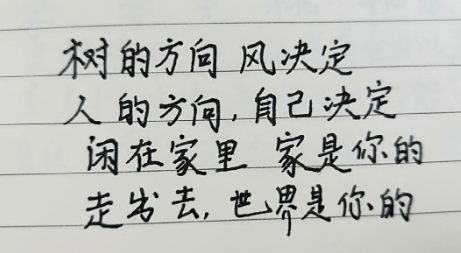 树的方向 风决定
人的方向,自己决定
闲在家里 家是你的
走出去,世界是你的